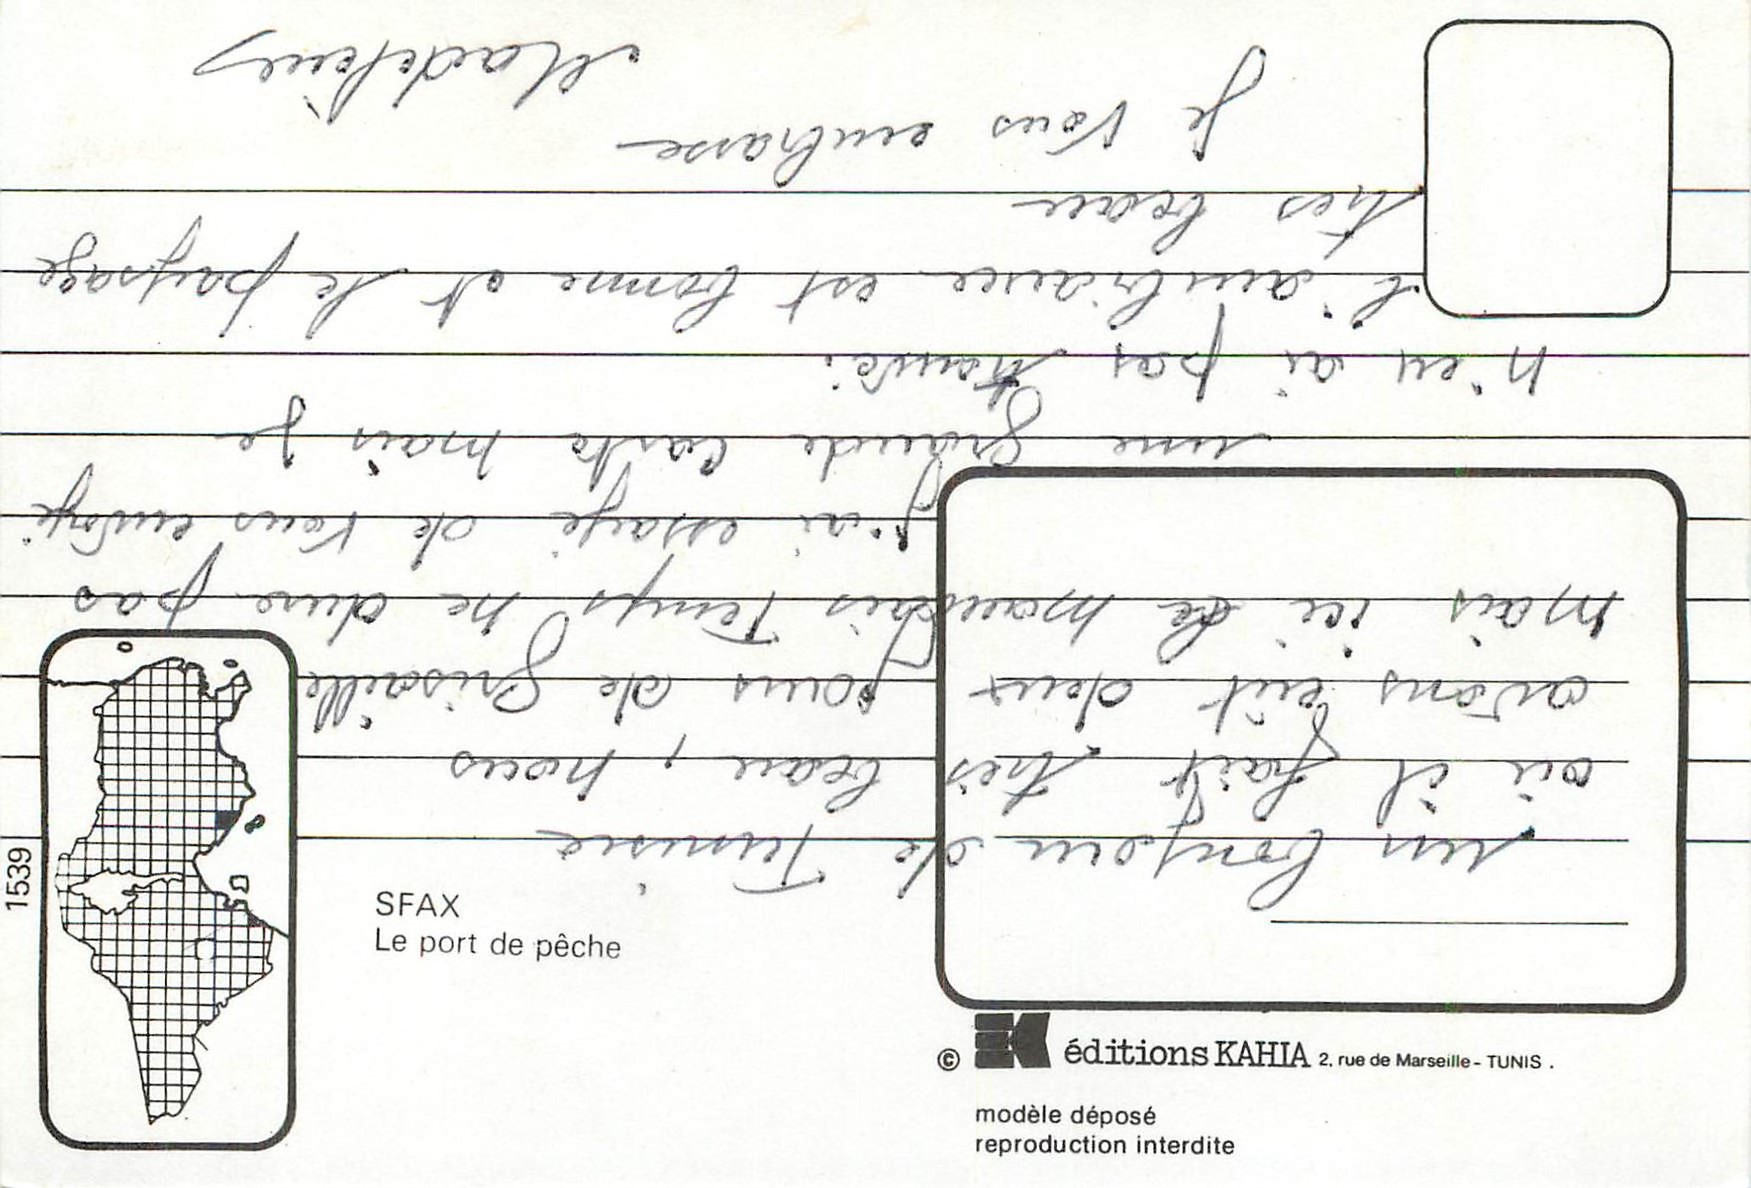 un bonjour de Tunisie
où il fait très beau, nous
avons eût deux jours de grisaille
mais ici le mauvais Temps ne dure pas
j'ai essayé de vous envoyé
une grande carte mais je
n'en ai pas trouvé.
L'ambiance est bonne et le paysage
très beau
Je vous embrasse
1539
SFAX
Le port de pêche
© K éditions KAHIA 2, rue de Marseille - TUNIS .
modèle déposé
reproduction interdite